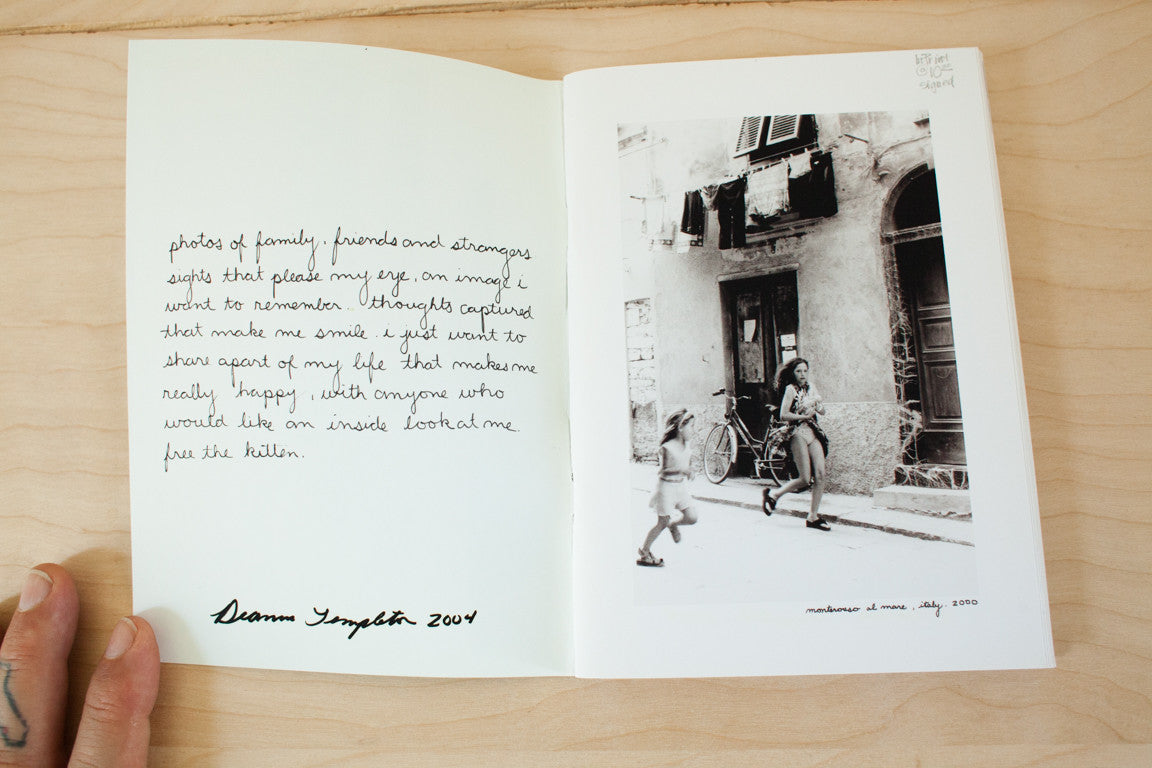 photos of family, friends and strangers
sights that please my eye, an image i
want to remember. thoughts captured
that make me smile. i just want to
share apart of my life that makes me
really happy, with anyone who
would like an inside look at me.
free the kitten.
Deanna Templeton 2004
@ 10
signed
monterouso al mare, italy. 2000